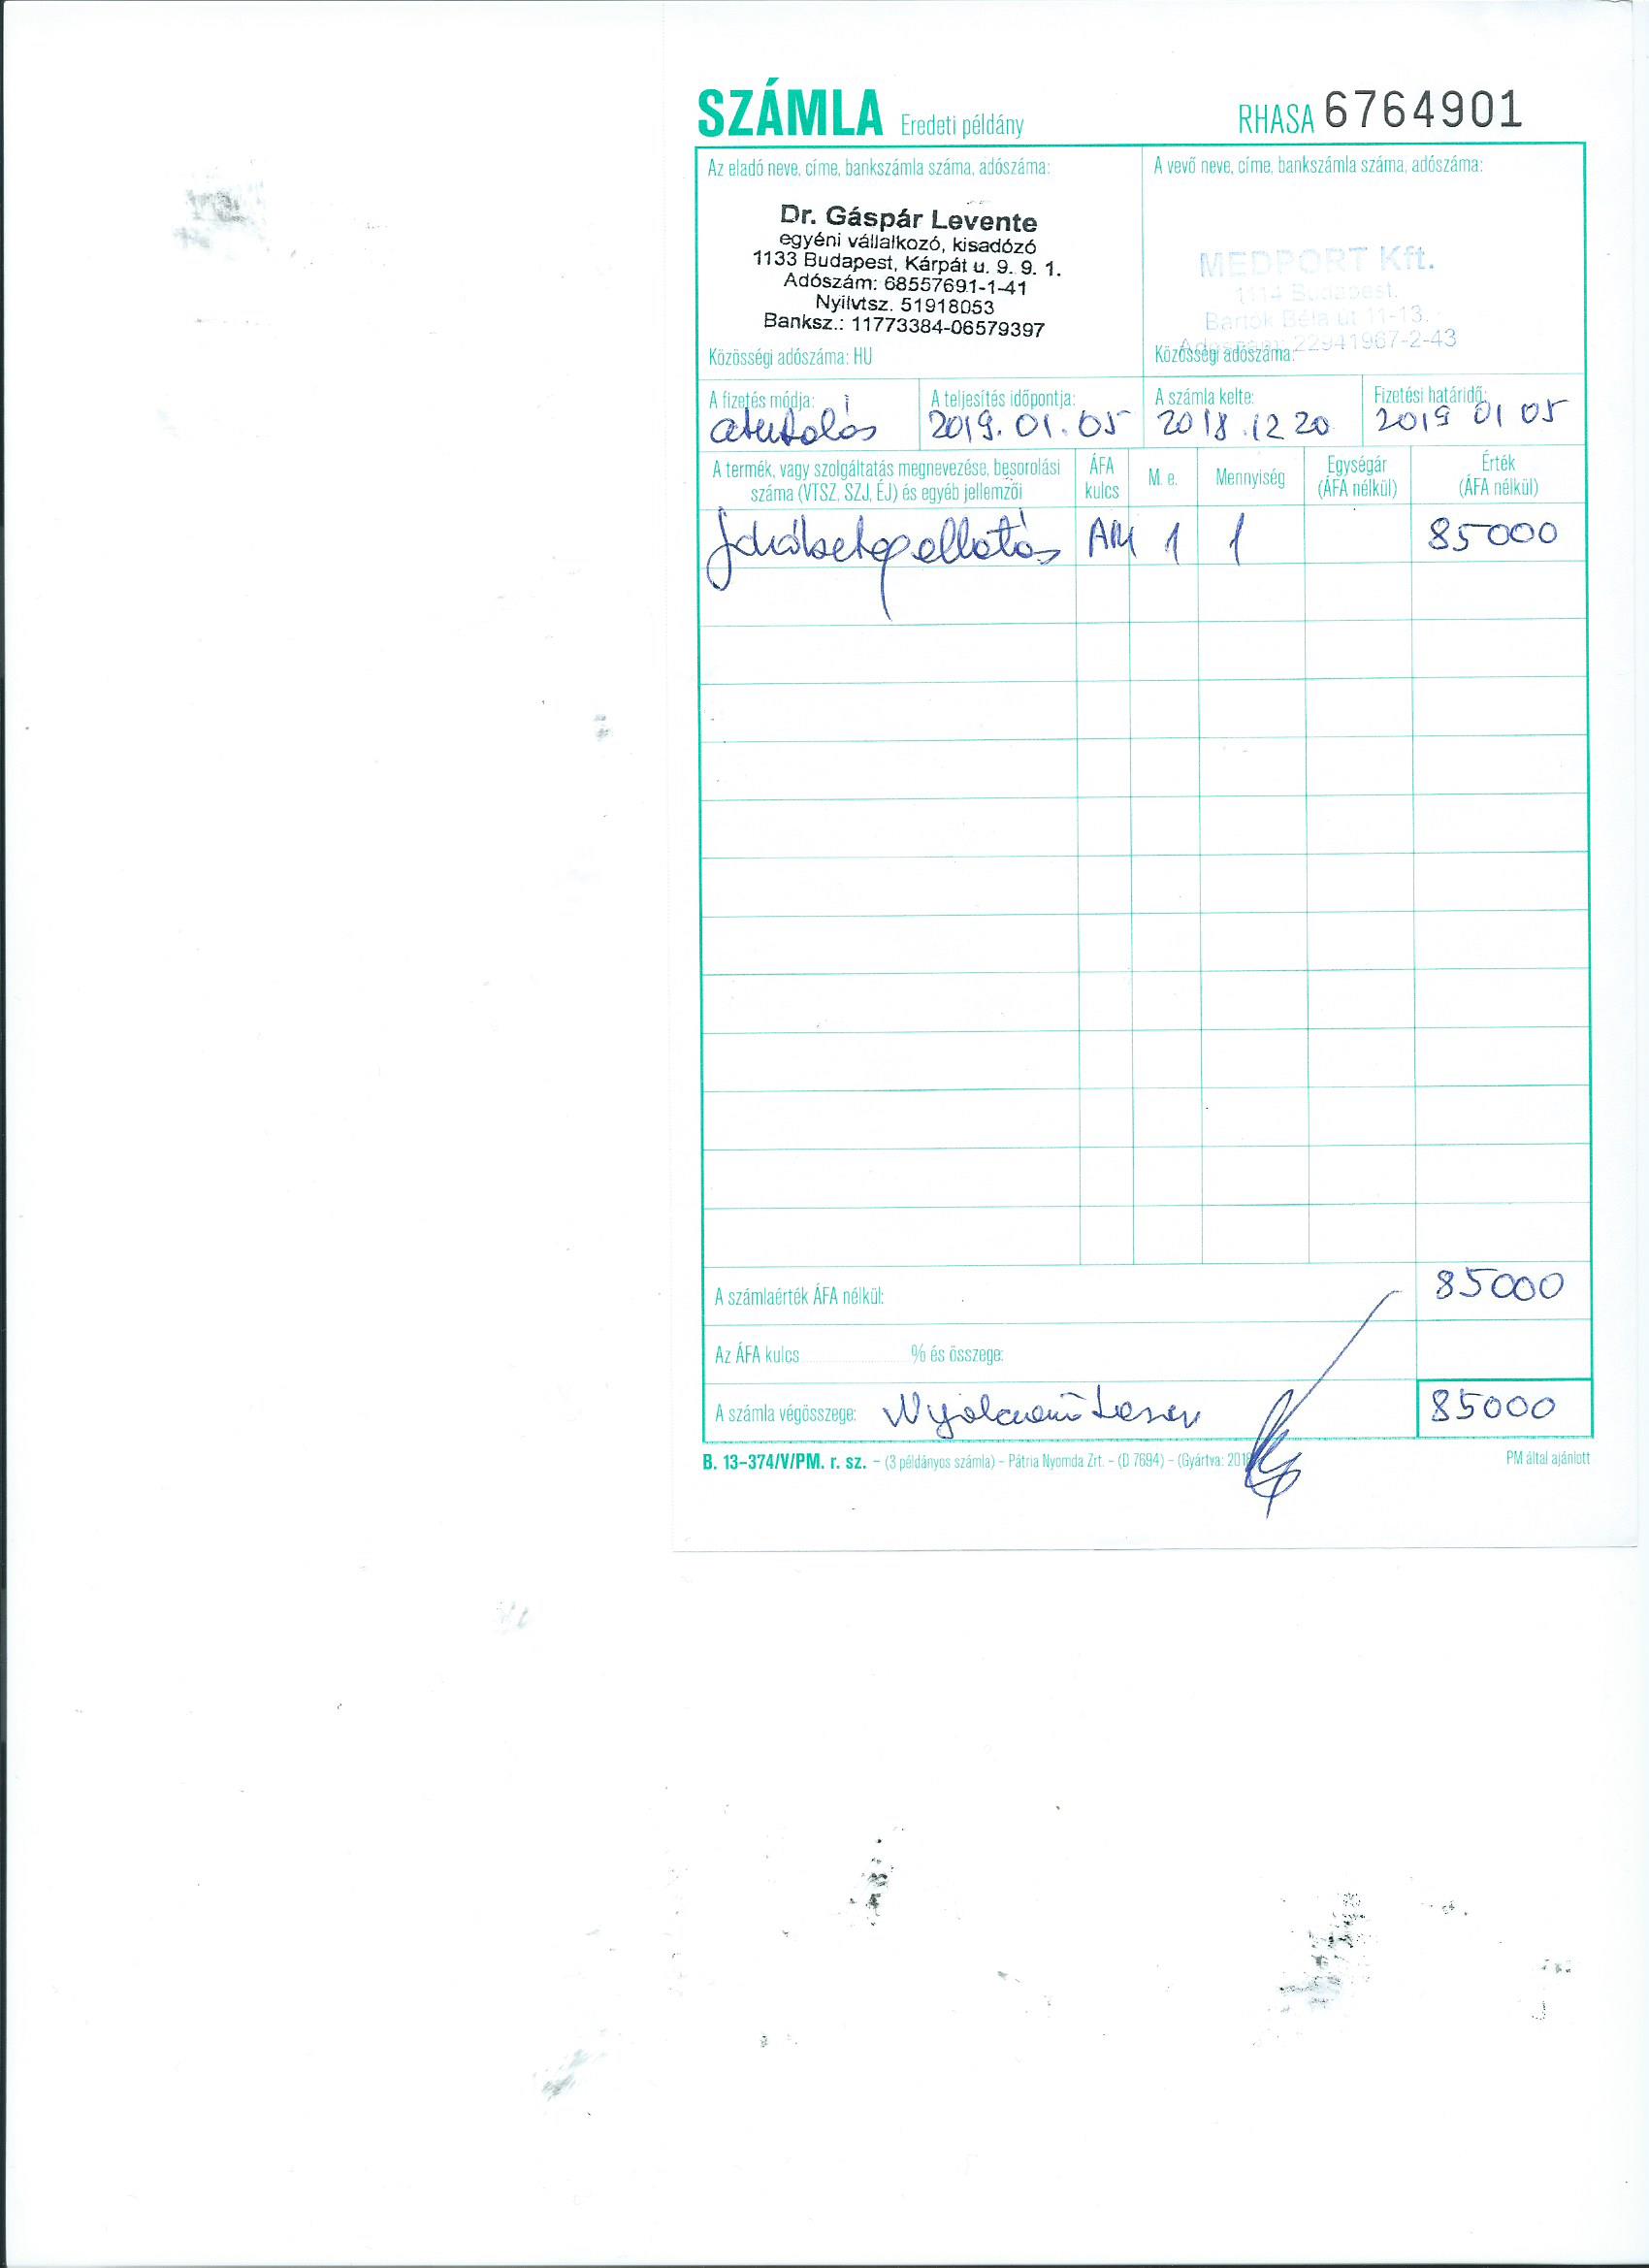 SZÁMLA Eredeti példány RHASA 6764901
Az eladó neve, címe, bankszámla száma, adószáma:
Dr. Gáspár Levente
egyéni vállalkozó, kisadózó
1133 Budapest, Kárpát u. 9. 9. 1.
Adószám: 68557691-1-41
Nyilvtsz. 51918053
Banksz.: 11773384-06579397
Közösségi adószáma: HU
A vevő neve, címe, bankszámla száma, adószáma:
MEDPORT Kft.
1114 Budapest.
Bartók Béla út 11-13.
Adószám: 22941967-2-43
Közösségi adószáma:
A fizetés módja: átutalás
A teljesítés időpontja: 2019. 01. 05
A számla kelte: 2018. 12 20
Fizetési határidő: 2019 01 05
A termék, vagy szolgáltatás megnevezése, besorolási
száma (VTSZ, SZJ, ÉJ) és egyéb jellemzői
ÁFA kulcs
M. e.
Mennyiség
Egységár (ÁFA nélkül)
Érték (ÁFA nélkül)
Járóbetegellátás AM 1 1 85000
A számlaérték ÁFA nélkül: 85000
Az ÁFA kulcs % és összege:
A számla végösszege: 85000
B. 13-374/V/PM. r. sz. – (3 példányos számla) – Pátria Nyomda Zrt. – (D 7694) – (Gyártva: 201
PM által ajánlott